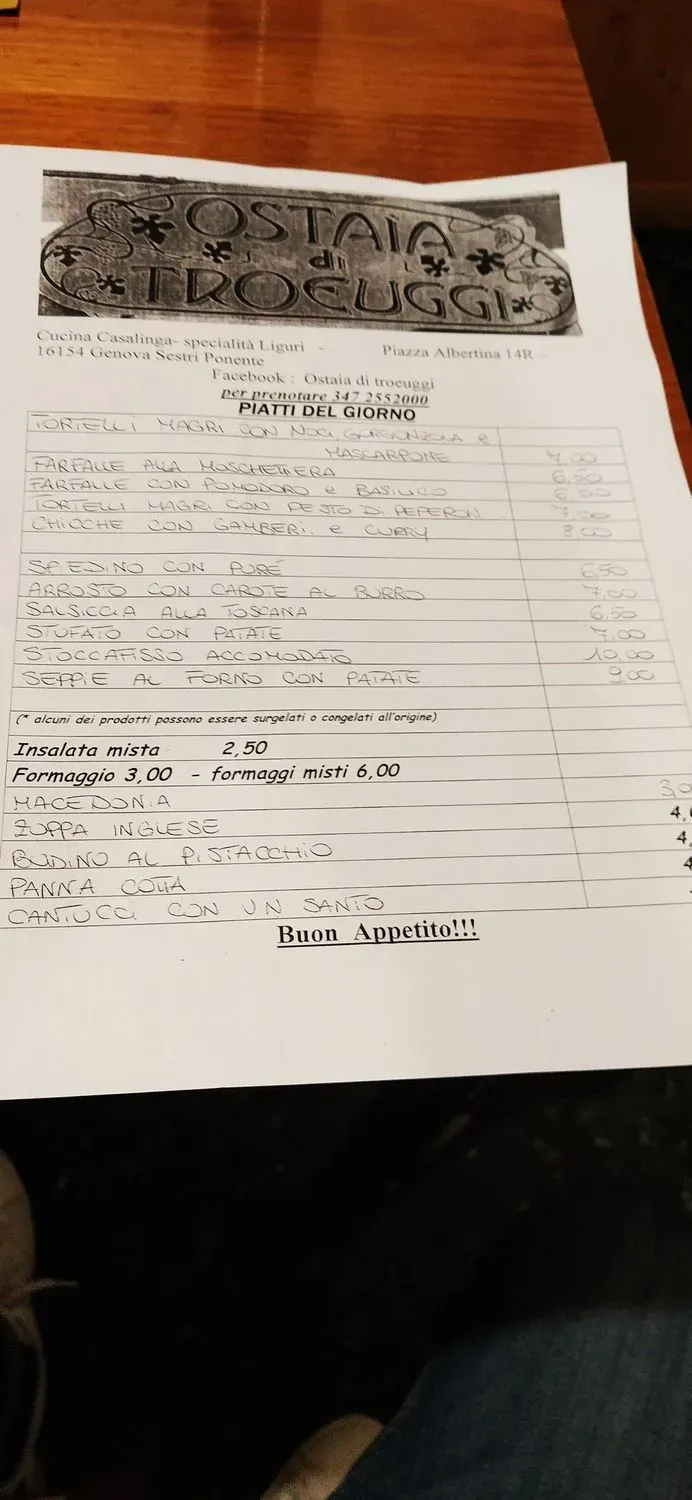 OSTAIA
di
TROEUGGI
Cucina Casalinga- specialità Liguri - Piazza Albertina 14R -
16154 Genova Sestri Ponente
Facebook : Ostaia di troeuggi
per prenotare 347 2552000
PIATTI DEL GIORNO
TORTELLI MAGRI CON NOCI, GORGONZOLA e
MASCARPONE 7,00
FARFALLE ALLA MOSCHETTIERA 6,50
FARFALLE CON POMODORO e BASILICO 6,00
TORTELLI MAGRI CON PESTO DI PEPERONI 7,00
CHICCHE CON GAMBERI e CURRY 8,00
SPIEDINO CON PURÉ 6,50
ARROSTO CON CAROTE AL BURRO 7,00
SALSICCIA ALLA TOSCANA 6,50
STUFATO CON PATATE 7,00
STOCCAFISSO ACCOMODATO 10,00
SEPPIE AL FORNO CON PATATE 9,00
(* alcuni dei prodotti possono essere surgelati o congelati all'origine)
Insalata mista 2,50
Formaggio 3,00 - formaggi misti 6,00
MACEDONIA 3,0
ZUPPA INGLESE 4,
BUDINO AL PISTACCHIO 4,
PANNA COTTA 4
CANTUCCI CON VIN SANTO
Buon Appetito!!!